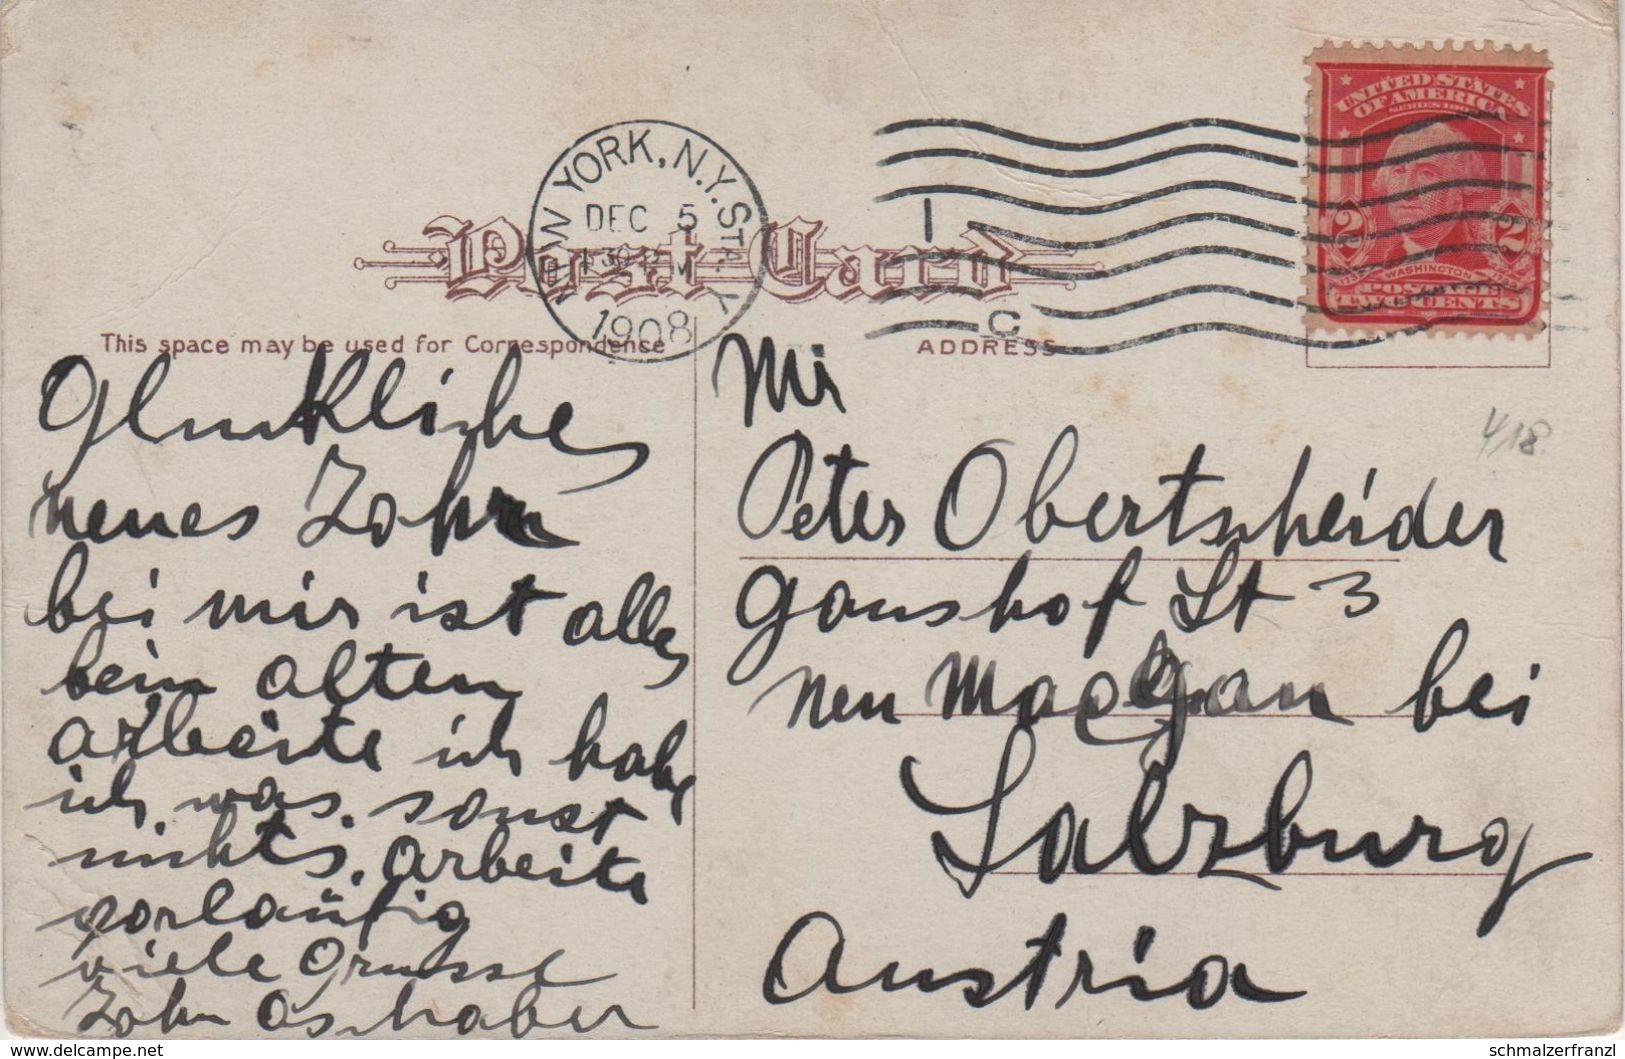 NEW YORK, N.Y. STA. Y
DEC 5
1 30 PM
1908
1
C
UNITED STATES
OF AMERICA
SERIES 1902
2 2
WASHINGTON
POSTAGE
TWO CENTS
Post Card
This space may be used for Correspondence
ADDRESS
4/18.
Glukliches
neues Johr
bei mir ist alles
beim alten
arbeite ich habe
ich was sonst
nichts. arbeite
vorläufig
viele Grusse
John Aschaber
Mr
Peter Obertscheider
Ganshof St 3
Neu Maxglan bei
Salzburg
Austria
www.delcampe.net
schmalzerfranzl